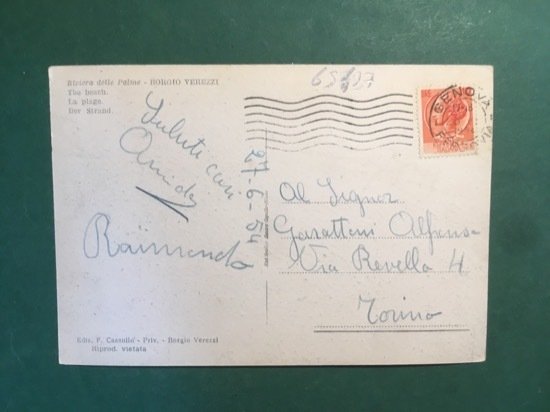 Riviera delle Palme - BORGIO VEREZZI
The beach.
La plage.
Der Strand.
Saluti cari
Raimondo
27-6-54
Al Signor
Garattoni Alfonso
Via Revella 4
Torino
GENOVA
Ediz. P. Cassullo - Priv. - Borgio Verezzi
Riprod. vietata